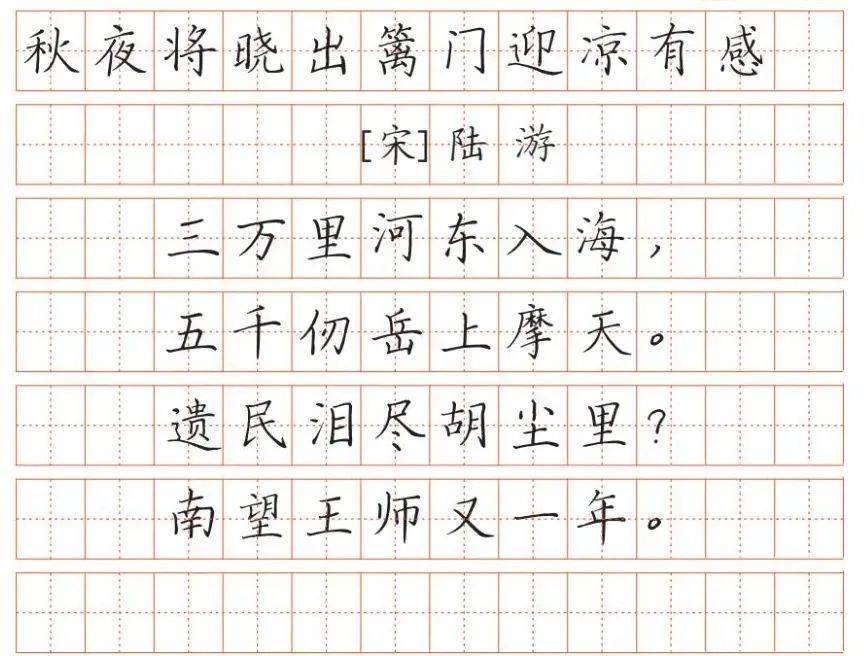 秋夜将晓出篱门迎凉有感
[宋]陆游
三万里河东入海，
五千仞岳上摩天。
遗民泪尽胡尘里?
南望王师又一年。